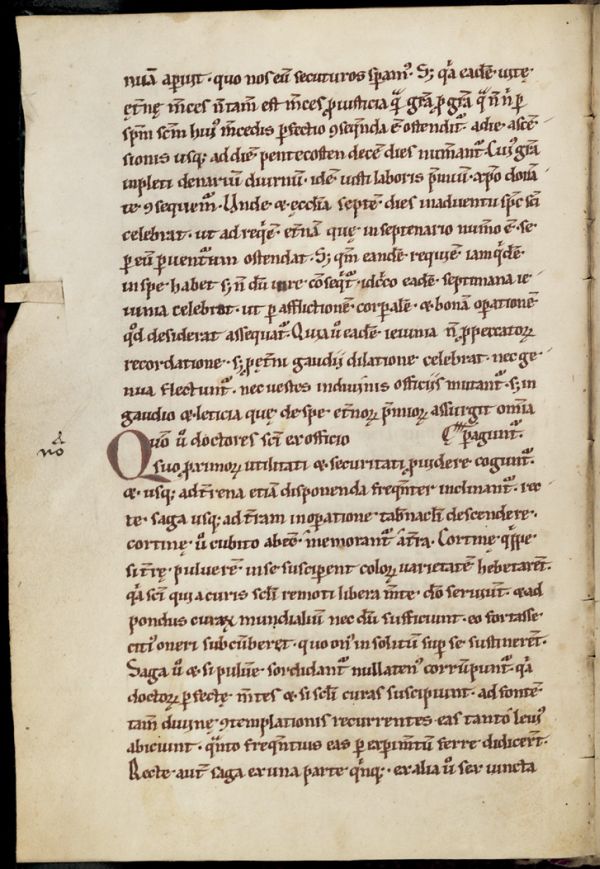 nuā aperuit · quo nos eū secuturos speram᷒ · Sꝫ q̄a eadē uitę
ęt̄nę m̄ces n̄ tam̄ est m̄ces ꝓ iusticia q̄ gr̄a ꝓ gr̄a
spm̄ scm̄ hui᷒ m̄cedis ꝑfectio ꝯseq̄nda ē ostendit᷒ · a die ascē
sionis usqꝫ ad diē pentecosten decē dies num̄ant᷒ · Cui᷒ gr̄a
inpleti denariū diurnū · idē iusti laboris p̄miū · a xp̄o donā
te ꝯsequem᷒ · Unde & ęcclia septē dies in aduentu spc̄ sc̄i
celebrat · ut ad req̄ē · et̄nā quę in septenario num̄o ē · se
ꝑ eū ꝑuenturam ostendat · Sꝫ qm̄ eandē requiē iam q̄dē
in spe habet sꝫ n̄ dū in re cōseq̄t᷒ · idcirco eadē septimana ie
iunia celebrat · ut ꝑ afflictionē corꝑalē · & bonā oꝑationē
qd̄ desiderat assequat᷒ · Quia ů eadē ieiunia n̄ ꝓ peccatoꝝ
recordatione · sꝫ ꝓ et̄ni gaudij dilatione celebrat · nec ge
nua flectunt᷒ · nec uestes in diuinis officijs mutant᷒ · sꝫ in
gaudio & leticia quę de spe et̄noꝝ p̄mioꝝ assurgit om̄ia
Quō ů doctores sc̄i ex officio ꝑagunt᷒ ·
suo ꝓximoꝝ utilitati & securitati ꝓuidere cogunt᷒ ·
& usqꝫ ad t̄rena etiā disponenda freq̄nter inclinant᷒ · rec
te saga usqꝫ ad t̄ram in oꝑatione tab̄nacl̄i descendere ·
cortinę ů cubito abeē memorant᷒ a t̄ra · Cortinę q̄ppe
si t̄rę puluerē in se susciperent coloꝝ uarietatē hebetarent ·
q̄a sc̄i qui a curis scl̄i remoti libera m̄te dn̄o seruiunt · & ad
pondus curaꝝ mundialiū nec dū sufficiunt · eo fortasse
citi᷒ oneri subcūberet · quo on᷒ insolitū sup se sustineret̄ ·
Saga ů & si puluere sordidant᷒ nullaten᷒ corrūpunt᷒ · q̄a
doctoꝝ ꝑfectę m̄tes & si scl̄i curas suscipiunt · ad fontē
tam̄ diuinę ꝯtemplationis recurrentes · eas tanto leui᷒
abiciunt · q̄nto freq̄ntius eas ꝑ exꝑim̄tū ferre didicer̄t ·
Recte aut̄ saga ex una parte q̄nqꝫ · ex alia ů sex uincta